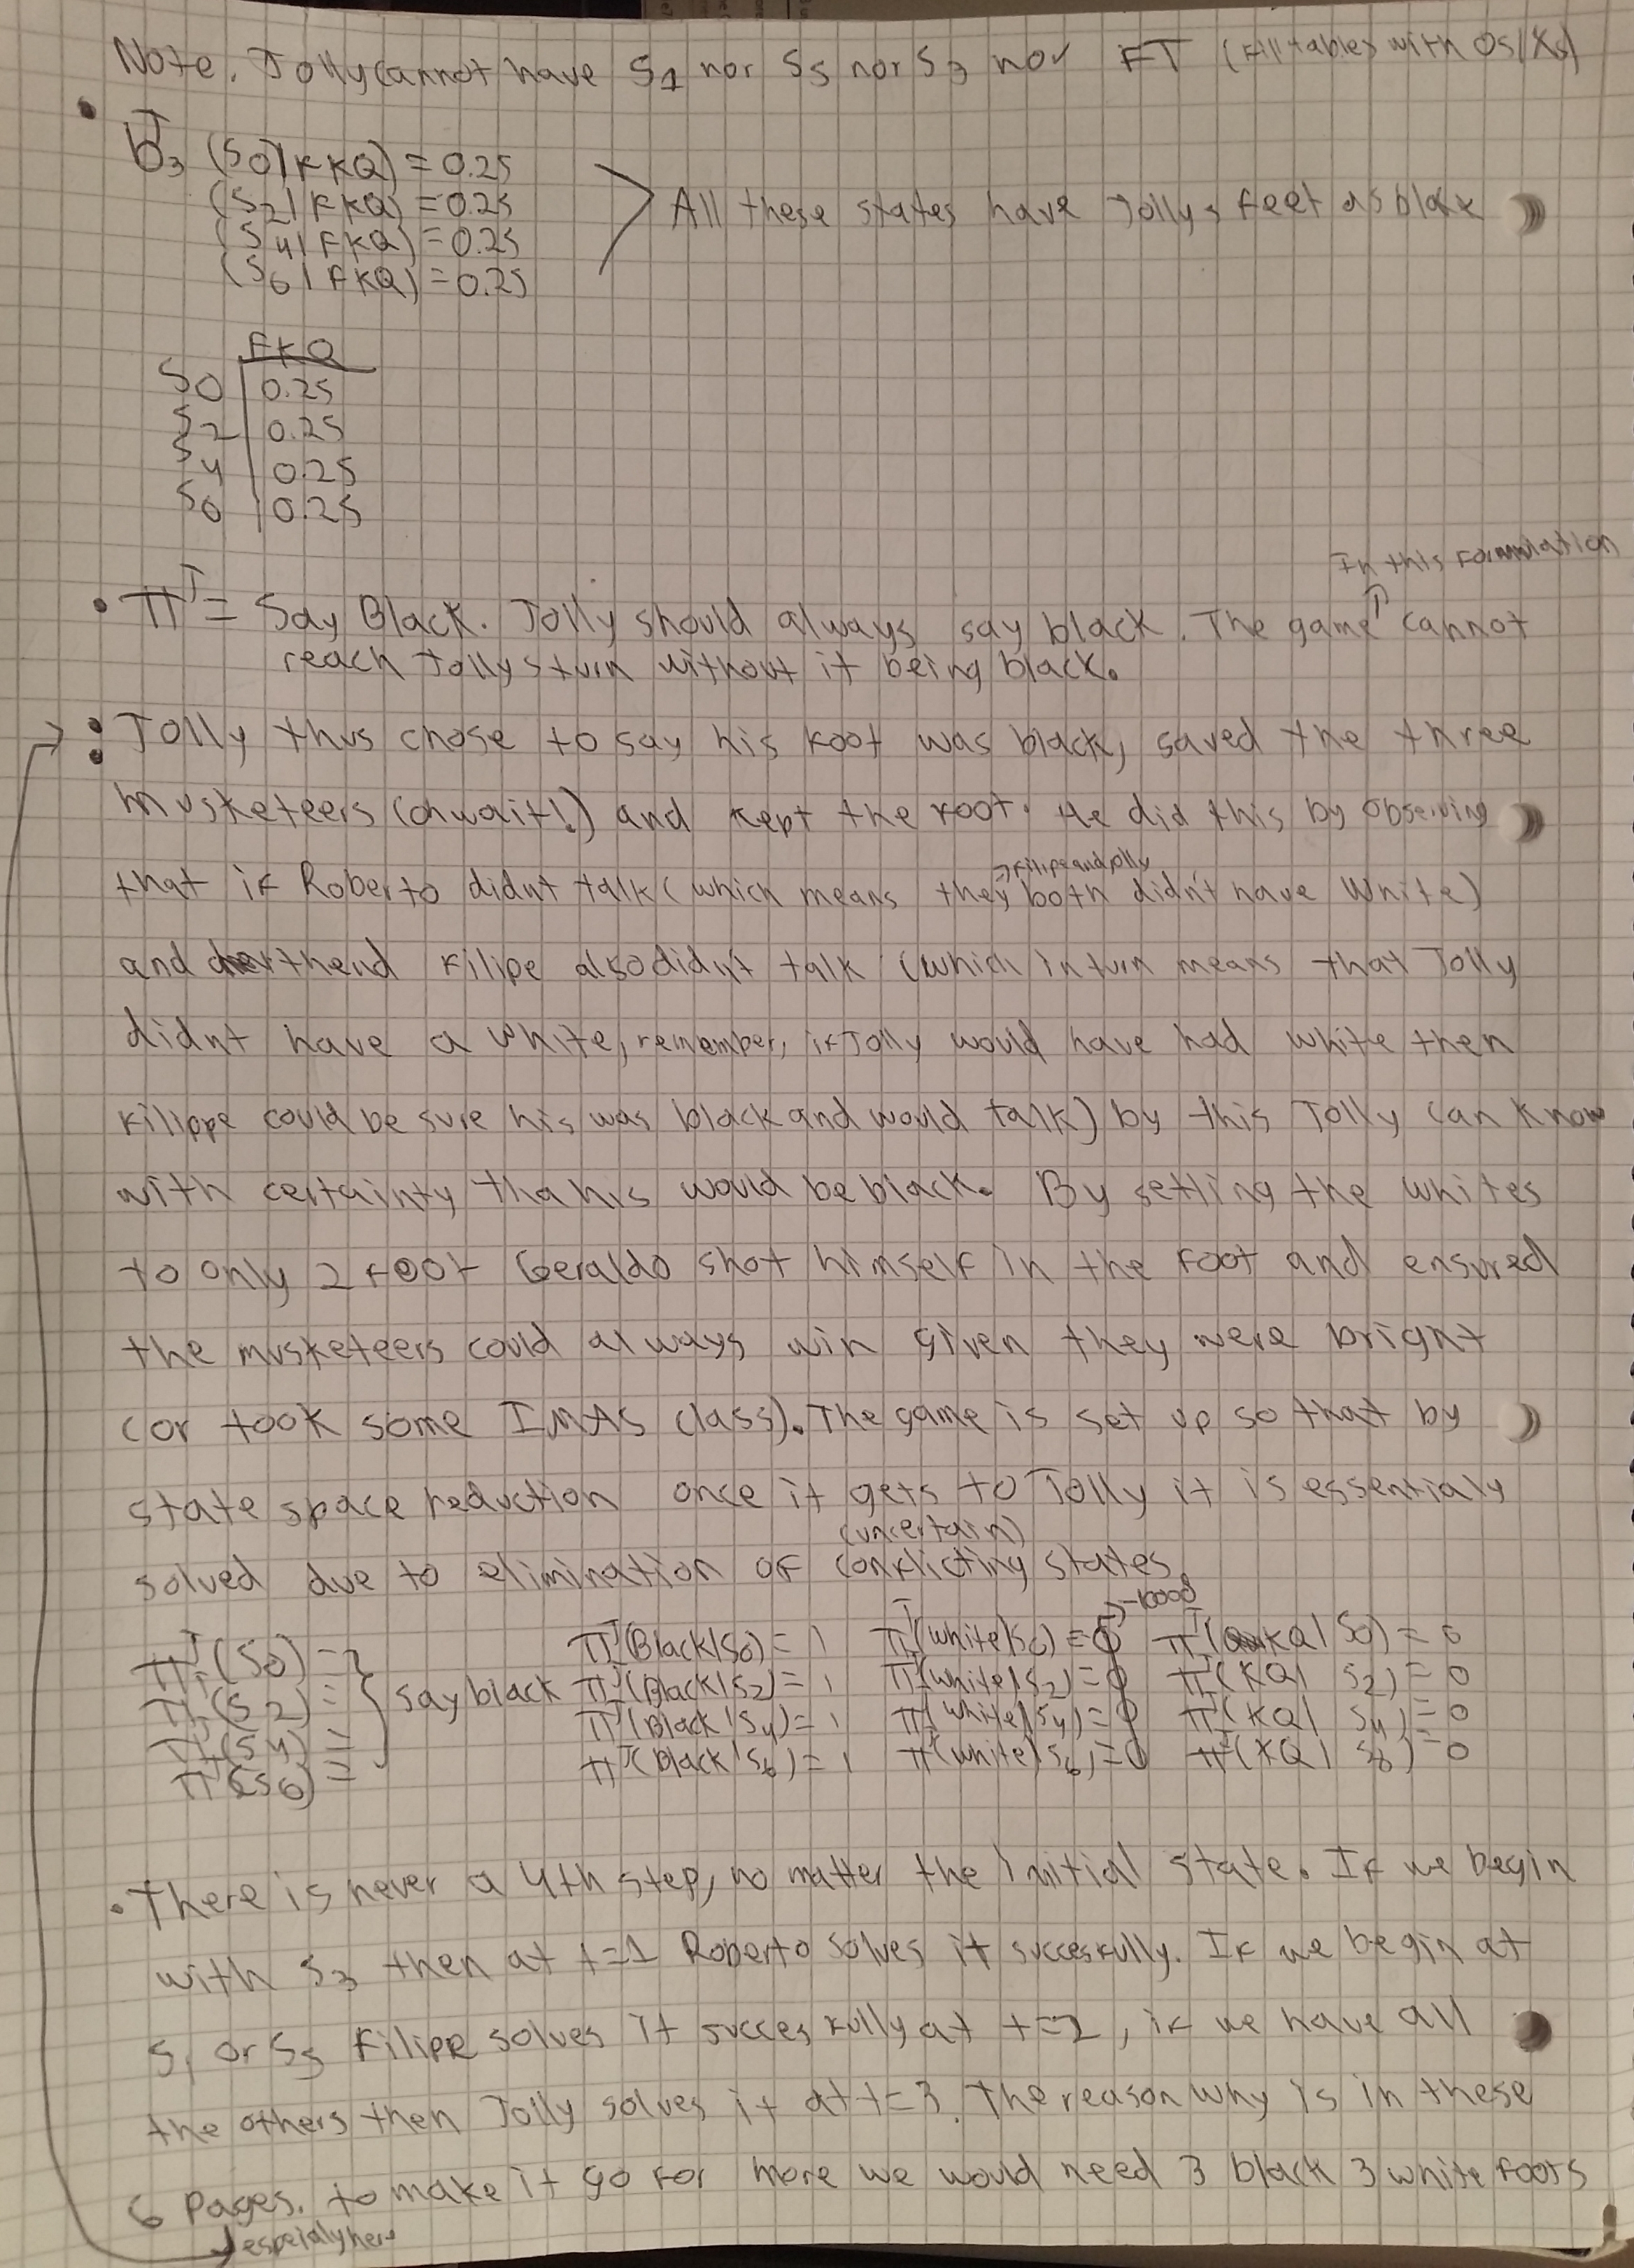 Note. Jolly cannot have S1 nor S5 nor S3 nor FT (Fill tables with 0s/Xs)
• b3^J (S0|FKQ) = 0.25
(S2|FKQ) = 0.25
(S4|FKQ) = 0.25
(S6|FKQ) = 0.25
> All these states have Jollys feet as black
FKQ
S0 | 0.25
S2 | 0.25
S4 | 0.25
S6 | 0.25
In this formulation
• π^J = Say Black. Jolly should always say black. The game ↑ cannot
reach Jollys turn without it being black.
→ : Jolly thus chose to say his foot was black, saved the three
musketeers (oh wait!) and kept the foot. He did this by observing
→ Filipe and Jolly
that if Roberto didnt talk (which means they both didn't have White)
and thend Filipe also didn't talk (which in turn means that Jolly
didnt have a white, remember, if Jolly would have had white then
Filippe could be sure his was black and would talk) by this Jolly can know
with certainty tha his would be black. By setting the whites
to only 2 foot Geraldo shot himself in the foot and ensured
the musketeers could always win given they were bright
(or took some IMAS class). The game is set up so that by
state space reduction once it gets to Jolly it is essentialy
(uncertain)
solved due to elimination of conflicting states.
π^J(S0) = } π^J(Black|S0) = 1 π^J(white|S0) = 0 → -10000 π^J(KQ|S0) = 0
π^J(S2) = } say black π^J(Black|S2) = 1 π^J(white|S2) = 0 π^J(KQ|S2) = 0
π^J(S4) = π^J(Black|S4) = 1 π^J(white|S4) = 0 π^J(KQ|S4) = 0
π^J(S6) = π^J(black|S6) = 1 π^J(white|S6) = 0 π^J(KQ|S6) = 0
• There is never a 4th step, no matter the initial state. If we begin
with S3 then at t=1 Roberto solves it succesfully. If we begin at
S1 or S5 Filipe solves it succesfully at t=2, if we have all
the others then Jolly solves it at t=3. The reason why is in these
6 pages. to make it go for more we would need 3 black 3 white foots
→ especialy here